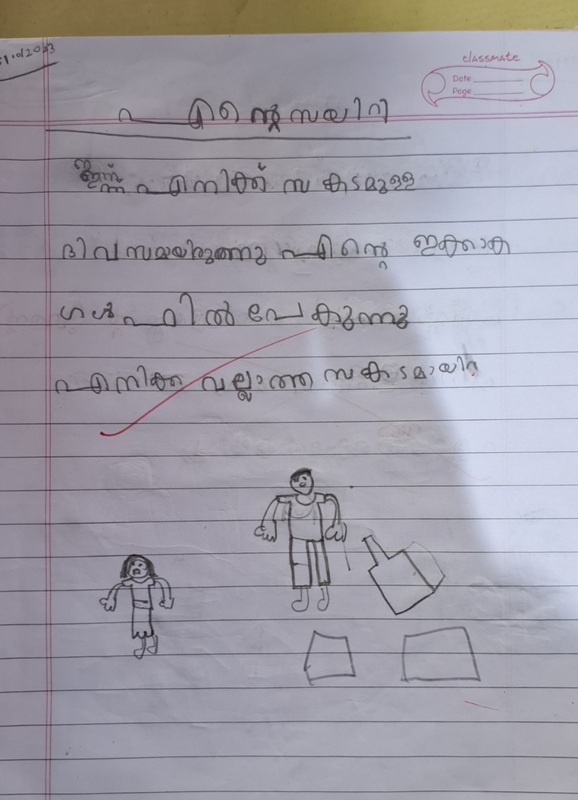 classmate
Date
Page
എന്റെ ഡയറി
ഇന്ന് എനിക്ക് സകടമുളള
ദിവസമയരുന്നു എന്റെ ഇക്കാക
ഗൾഫിൽ പേകുന്നു
എനിക്ക വല്ലാത്ത സകടമായി